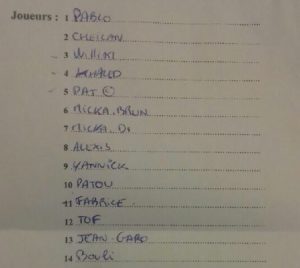 Joueurs : 1 PABLO
2 CHEIKAN
3 William
4 ARNAUD
5 PAT ©
6 MICKA. BRUN
7 MICKA. Di
8 ALEXIS
9 YANNICK
10 PATOU
11 FABRICE
12 TOF
13 JEAN-CARO
14 Bouli